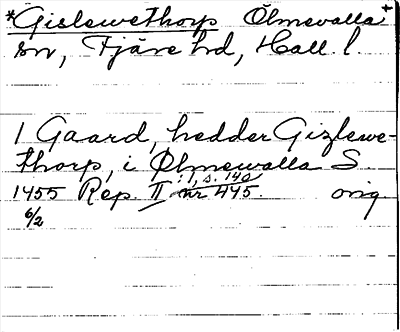 *Gislewethorp Ölmevalla +
sn, Fjäre hd, Hall. l.
1 Gaard, hedder Gizlewe-
thorp, i Ølmewalla S.
: 1, s. 140
1455 Rep. II nr 445. orig
6/2